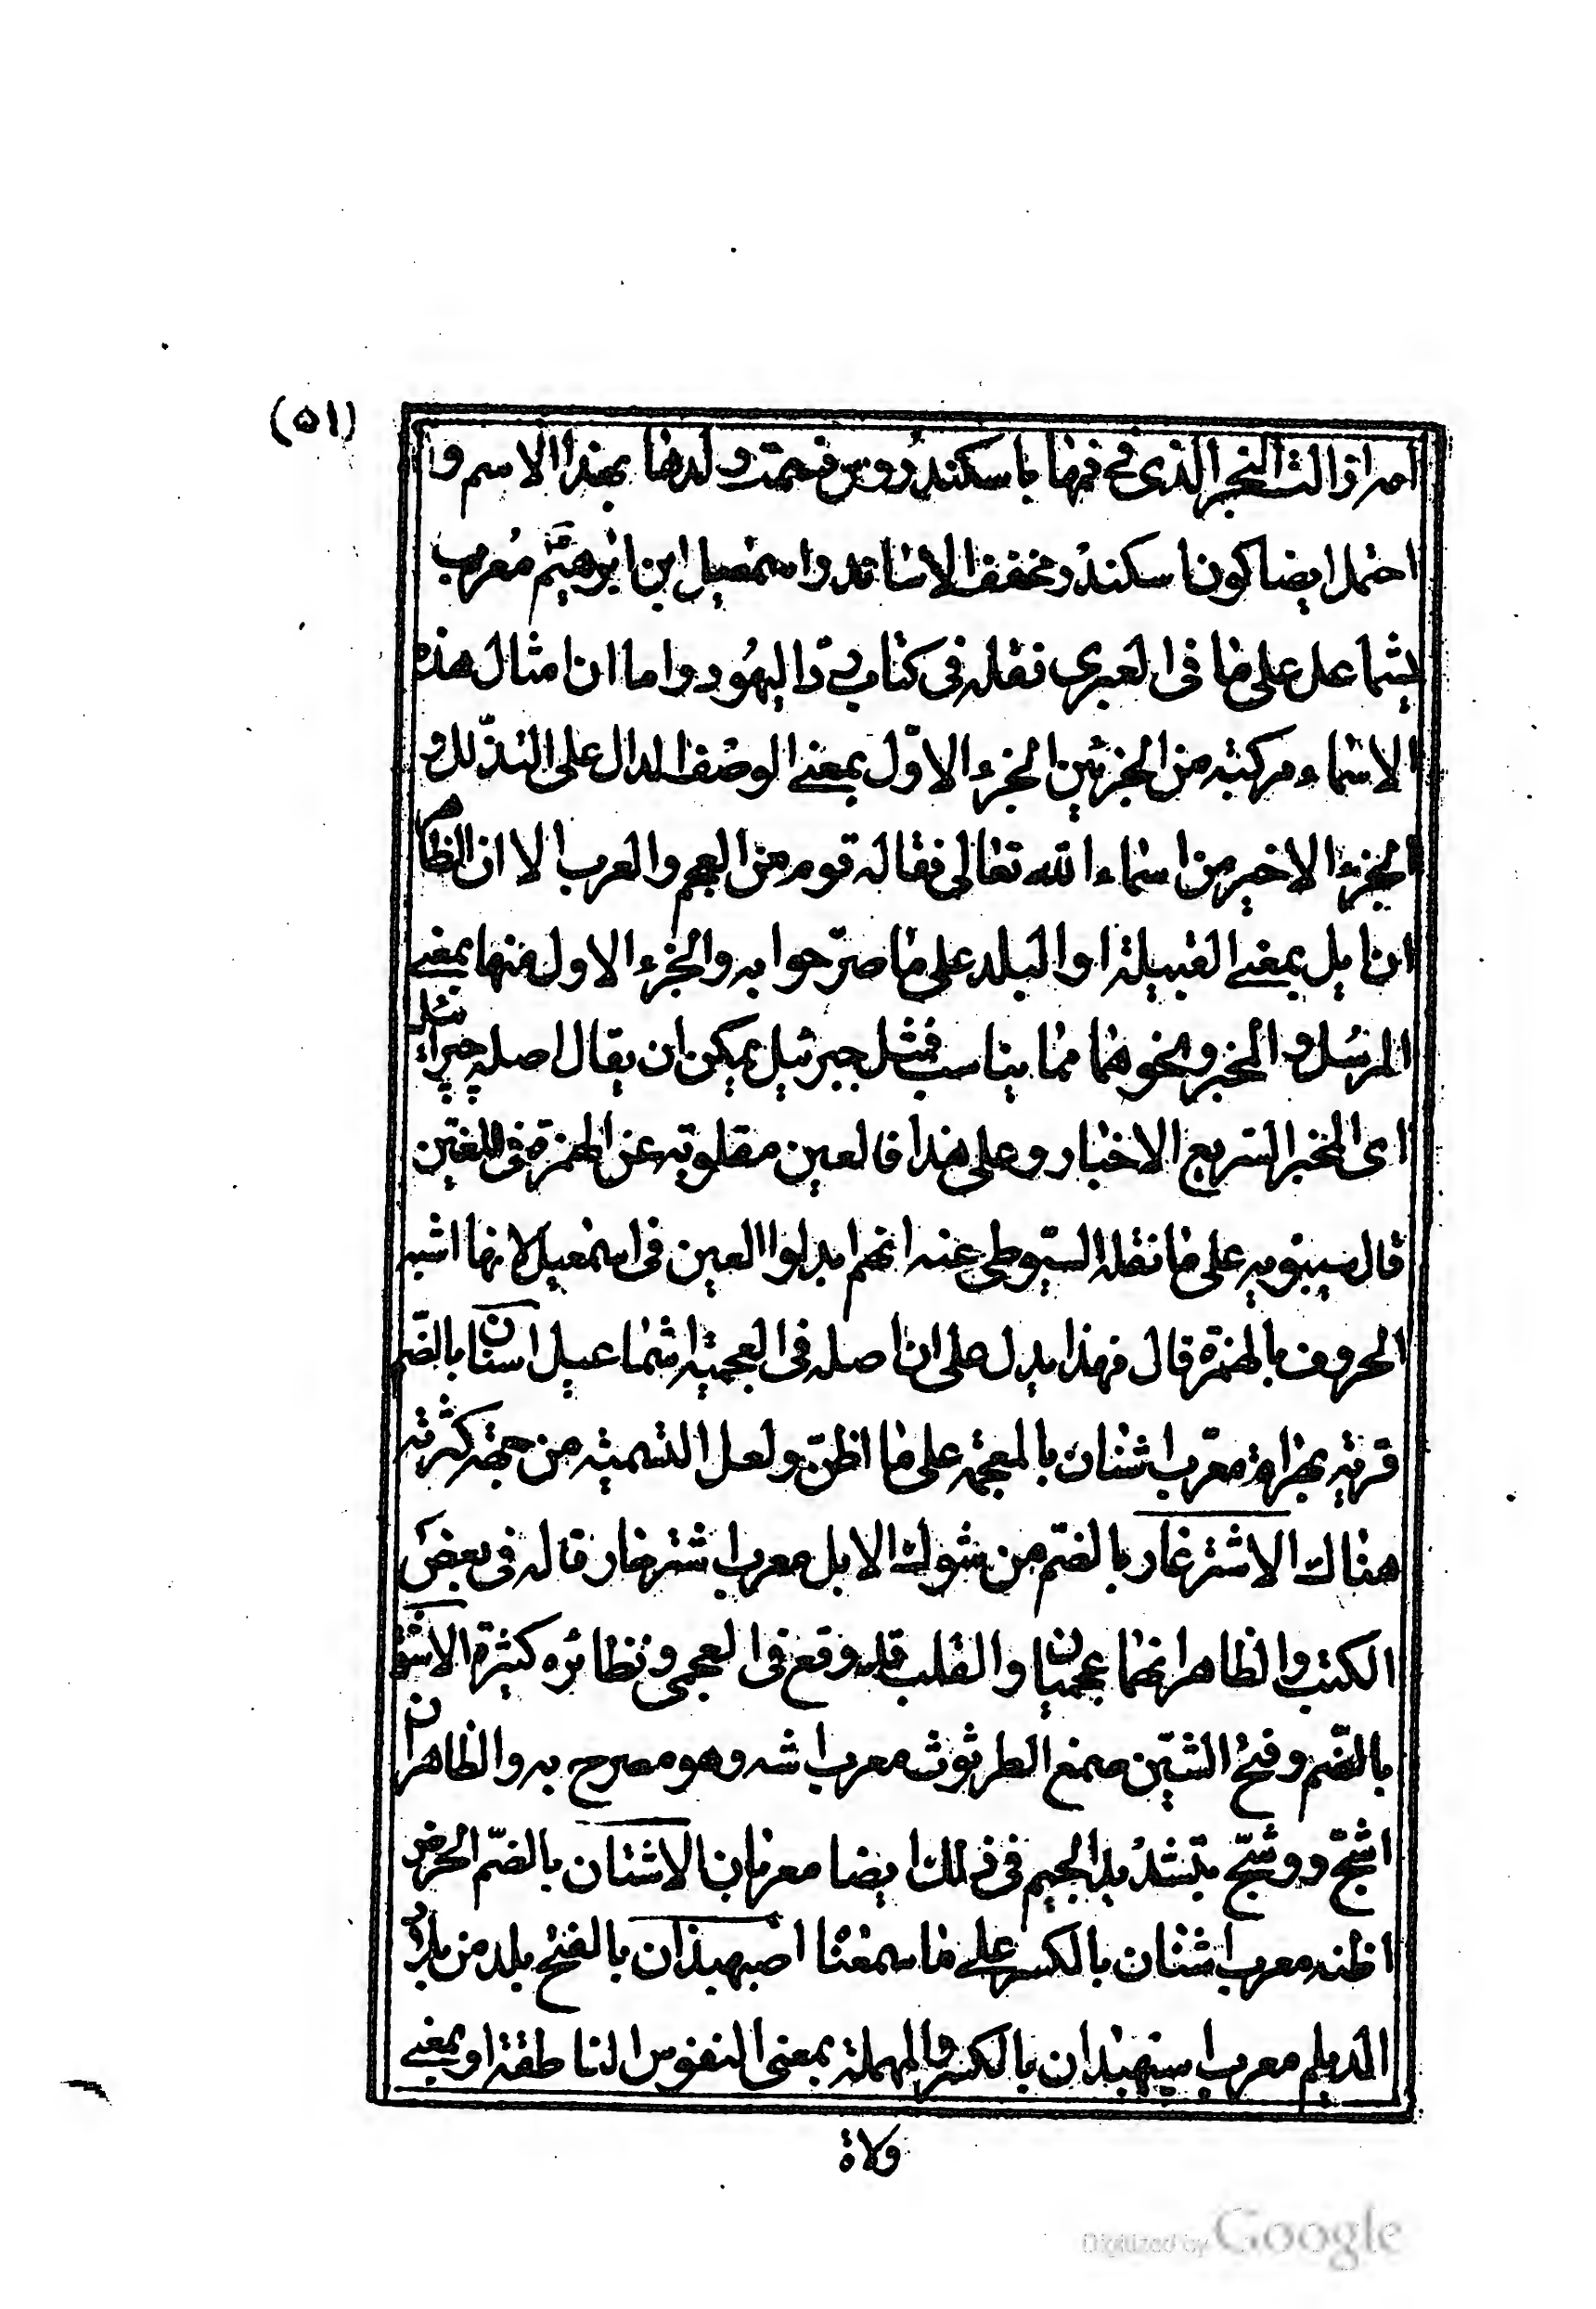 (۵۱)
امراة الث البخر الذى فى فمها باسكندروس فسمت ولدها بهذا الاسم و
احتمل ايضا كون اسكندر مخفف الاساتد واسمعيل ابن ابرهيم معرب
يشماعل على ما فى العبرى نقله فى كتاب رد اليهود واما ان امثال هذه
الاسماء مركبة من الجزئين الجزء الاوّل بمعنى الوصف الدال على التذلل و
الجزء الاخير من اسماء الله تعالى فقاله قوم من العجم والعرب الا ان الظاهر
ان ايل بمعنى القبيلة او البلد على ما صرّحوا به والجزء الاول منها بمعنى
المرسل و المخبر ونحوهما مما يناسب فمثل جبرئيل يمكن ان يقال اصله چپرائيل
اى المخبر السريع الاخبار وعلى هذا فالعين مقلوبة عن الهمزة فى اللغتين
قال سيبويه على ما نقله السيوطى عنه انهم ابدلوا العين فى اسمعيل لانها اشبه
الحروف بالهمزة قال فهذا يدل على ان اصله فى العجمية اشماعيل اسنان بالضم
قرية بهراة معرّب اشنان بالمعجمة على ما اظنّ ولعل التسمية من جهة كثرته
هناك الاشترغار بالضم من شوك الابل معرب اشترخار قاله فى بعض
الكتب والظاهر انهما عجميان والقلب قد وقع فى العجمى ونظائره كثيرة الاشق
بالضّم وفتح الشين صمغ الطرثوث معرب اشه وهو مصرح به والظاهر ان
اشجّ ووشجّ بتشديد الجيم فى ذلك ايضا معربان الاشنان بالضّم الحرض
اظنه معرب اشنان بالكسر على ما سمعنا اصبهبذان بالفتح بلد من بلاد
الديلم معرب اسپهبدان بالكسر والمهملة بمعنى النفوس الناطقة او بمعنى
ولاة
Digitized by Google